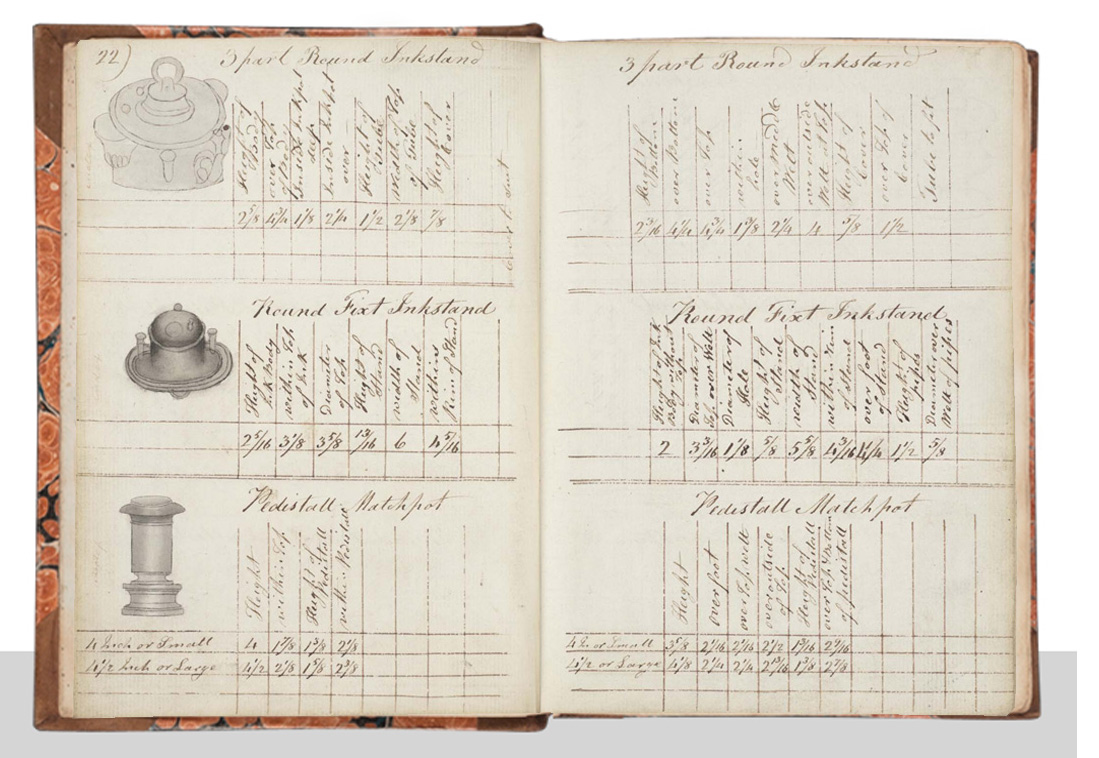 22)
3 part Round Inkstand
Height of Body
over Top of Body
Inside Ink pot deep
Inside Ink pot over
Height of Tube
width of Top of Tube
Height of Cover
2 5/8 4 3/4 1 7/8 2 1/4 1 1/2 2 1/8 7/8
Round Fixt Inkstand
Height of Ink Body
within Top of Ink
diameter of Top
Height of Stand
width of Stand
within Rim of Stand
2 5/16 3 1/8 3 5/8 13/16 6 4 5/16
Pedistall Matchpot
Height
within Top
Height of Pedistall
within Pedistall
4 Inch or Small 4 1 7/8 1 5/8 2 1/8
4 1/2 Inch or Large 4 1/2 2 1/8 1 5/8 2 3/8
3 part Round Inkstand
Height of Bottom
over Bottom
over Top
within hole
over middle Welt
over outside Welt at Top
Height of Cover
over Top of Cover
Tube to fit
2 3/16 4 1/4 4 3/4 1 5/8 2 1/4 4 5/8 1 1/2
Round Fixt Inkstand
Height of Ink Body without Top
Diameter of Top over Welt
Diameter of Hole
Height of Stand
width of Stand
within Rim of Stand
over foot of Stand
Height of pipes
Diameter over Welt of pipes
2 3 3/16 1 1/8 5/8 5 5/8 4 3/16 4 1/4 1 1/2 5/8
Pedistall Matchpot
Height
over pot
over Top welt
over outside of Top
Height of Pedistall
over Top & Bottom of pedistall
4 In or Small 3 5/8 2 1/16 2 1/2
4 1/2 or Large 4 1/8 2 1/4 2 1/4 1 5/8 2 7/8